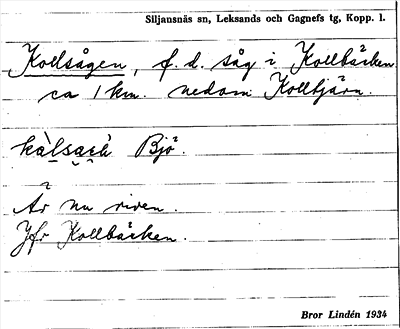 Siljansnäs sn, Leksands och Gagnefs tg, Kopp. l.
Kollsågen, f.d. såg i Kollbäcken
ca 1 km. nedom Kolltjärn.
Bjö.
Är nu riven.
Jfr Kollbäcken.
Bror Lindén 1934